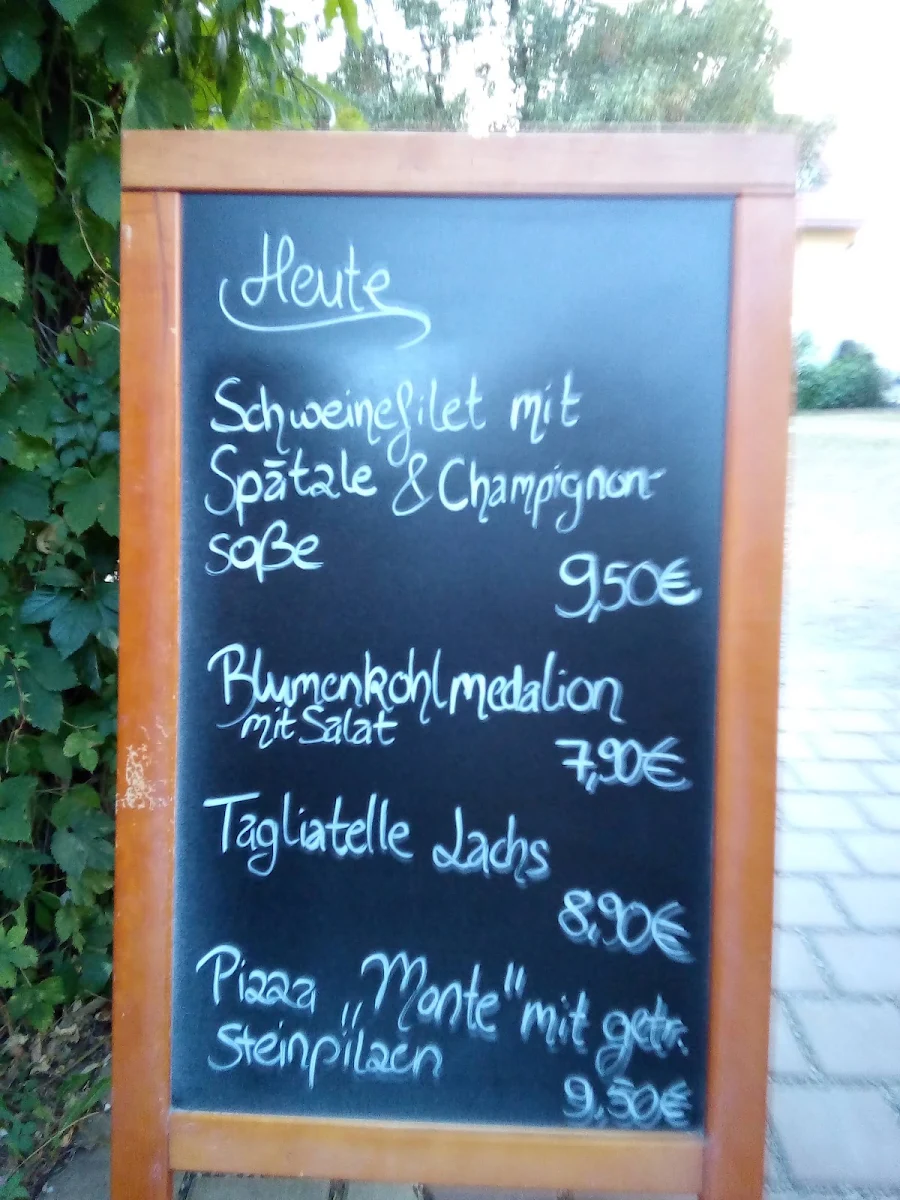 Heute
Schweinefilet mit
Spätzle & Champignon-
soße
9,50€
Blumenkohlmedalion
mit Salat
7,90€
Tagliatelle Lachs
8,90€
Pizza „Monte" mit getr.
Steinpilzen
9,50€